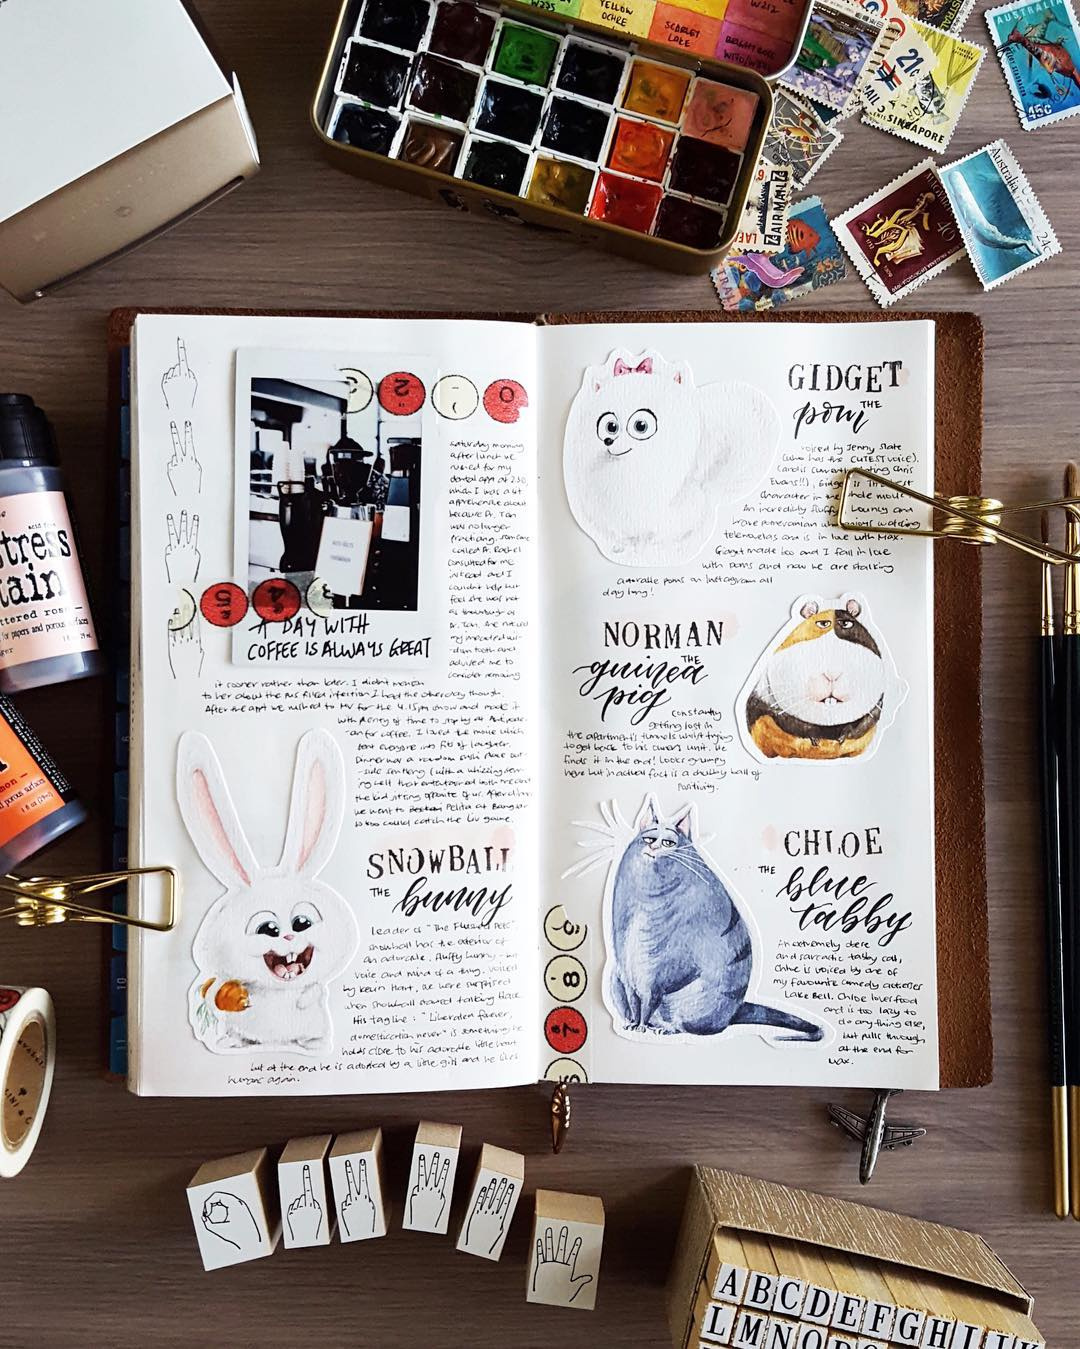 W235
YELLOW
OCHRE
SCARLET
LAKE
BRIGHT ROSE
21c
SINGAPORE
AIR MAIL
AUSTRALIA
45c
Australia
24c
40
45c
acid free
stress
tain
ttered rose
for papers and porous surfaces
1 fl oz (29ml)
A DAY WITH
COFFEE IS ALWAYS GREAT
saturday morning
after lunch we
rushed for my
dental appt at 2.30,
which I was a bit
apprehensive about
because Dr. Tan
was no longer
practising. someone
called Dr. Rachel
consulted for me
instead and I
couldn't help but
feel she was not
as thorough as
Dr. Tan. She noticed
my impacted wis-
dom tooth and
advised me to
consider removing
it sooner rather than later. I didn't mention
to her about the pus filled infection I had the other day though.
After the appt we rushed to MV for the 4.15pm show and made it
with plenty of time to stop by at
for coffee. I loved the movie which
sent everyone into fits of laughter.
Dinner was a random
(with a whizzing
that entertained both me and
the kid sitting opposite of us. After dinner
we went to Pelita at Bangsar
so Loo could catch the Liv game.
SNOWBALL
THE bunny
Leader of "The Flushed Pets"
snowball has the exterior of
an adorable, fluffy bunny - w
voice and mind of a thug. voiced
by Kevin Hart, we were surprised
when snowball started talking
His tagline: "Liberated forever,
domesticated never" is something he
holds close to his adorable little heart
but at the end he is adopted by a little girl and he likes
humans again.
GIDGET
THE
pom
voiced by Jenny Slate
(who has the CUTEST voice).
(and is currently dating Chris
Evans!!), Gidget is the best
character in the whole movie
An incredibly fluffy, bouncy and
brave pomeranian who enjoys watching
telenovelas and is in love with Max.
Gidget made Loo and I fall in love
with poms and now we are stalking
adorable poms on Instagram all
day long!
NORMAN
THE
guinea
pig
constantly
getting lost in
the apartment's tunnels whilst trying
to get back to his owners unit. He
finds it in the end! Looks grumpy
here but in actual fact is a chubby ball of
positivity.
CHLOE
THE
blue
tabby
An extremely obese
and sarcastic tabby cat,
Chloe is voiced by one of
my favourite comedy actresses
Lake Bell. Chloe loves food
and is too lazy to
do anything else,
but pulls through
at the end for
Max.
ABCDEFGHIJK
LMNO